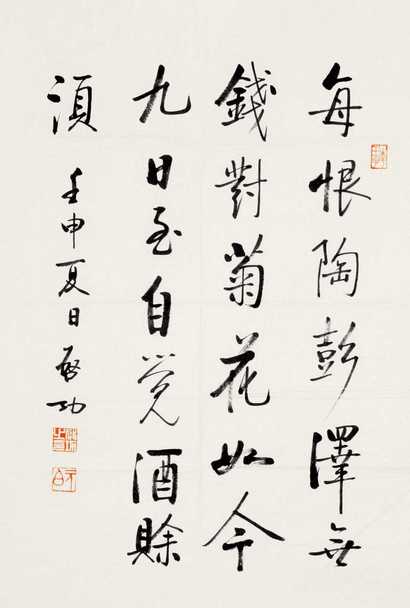 每恨陶彭澤無
錢對菊花如今
九日至自覺酒賒
須
壬申夏日啟功